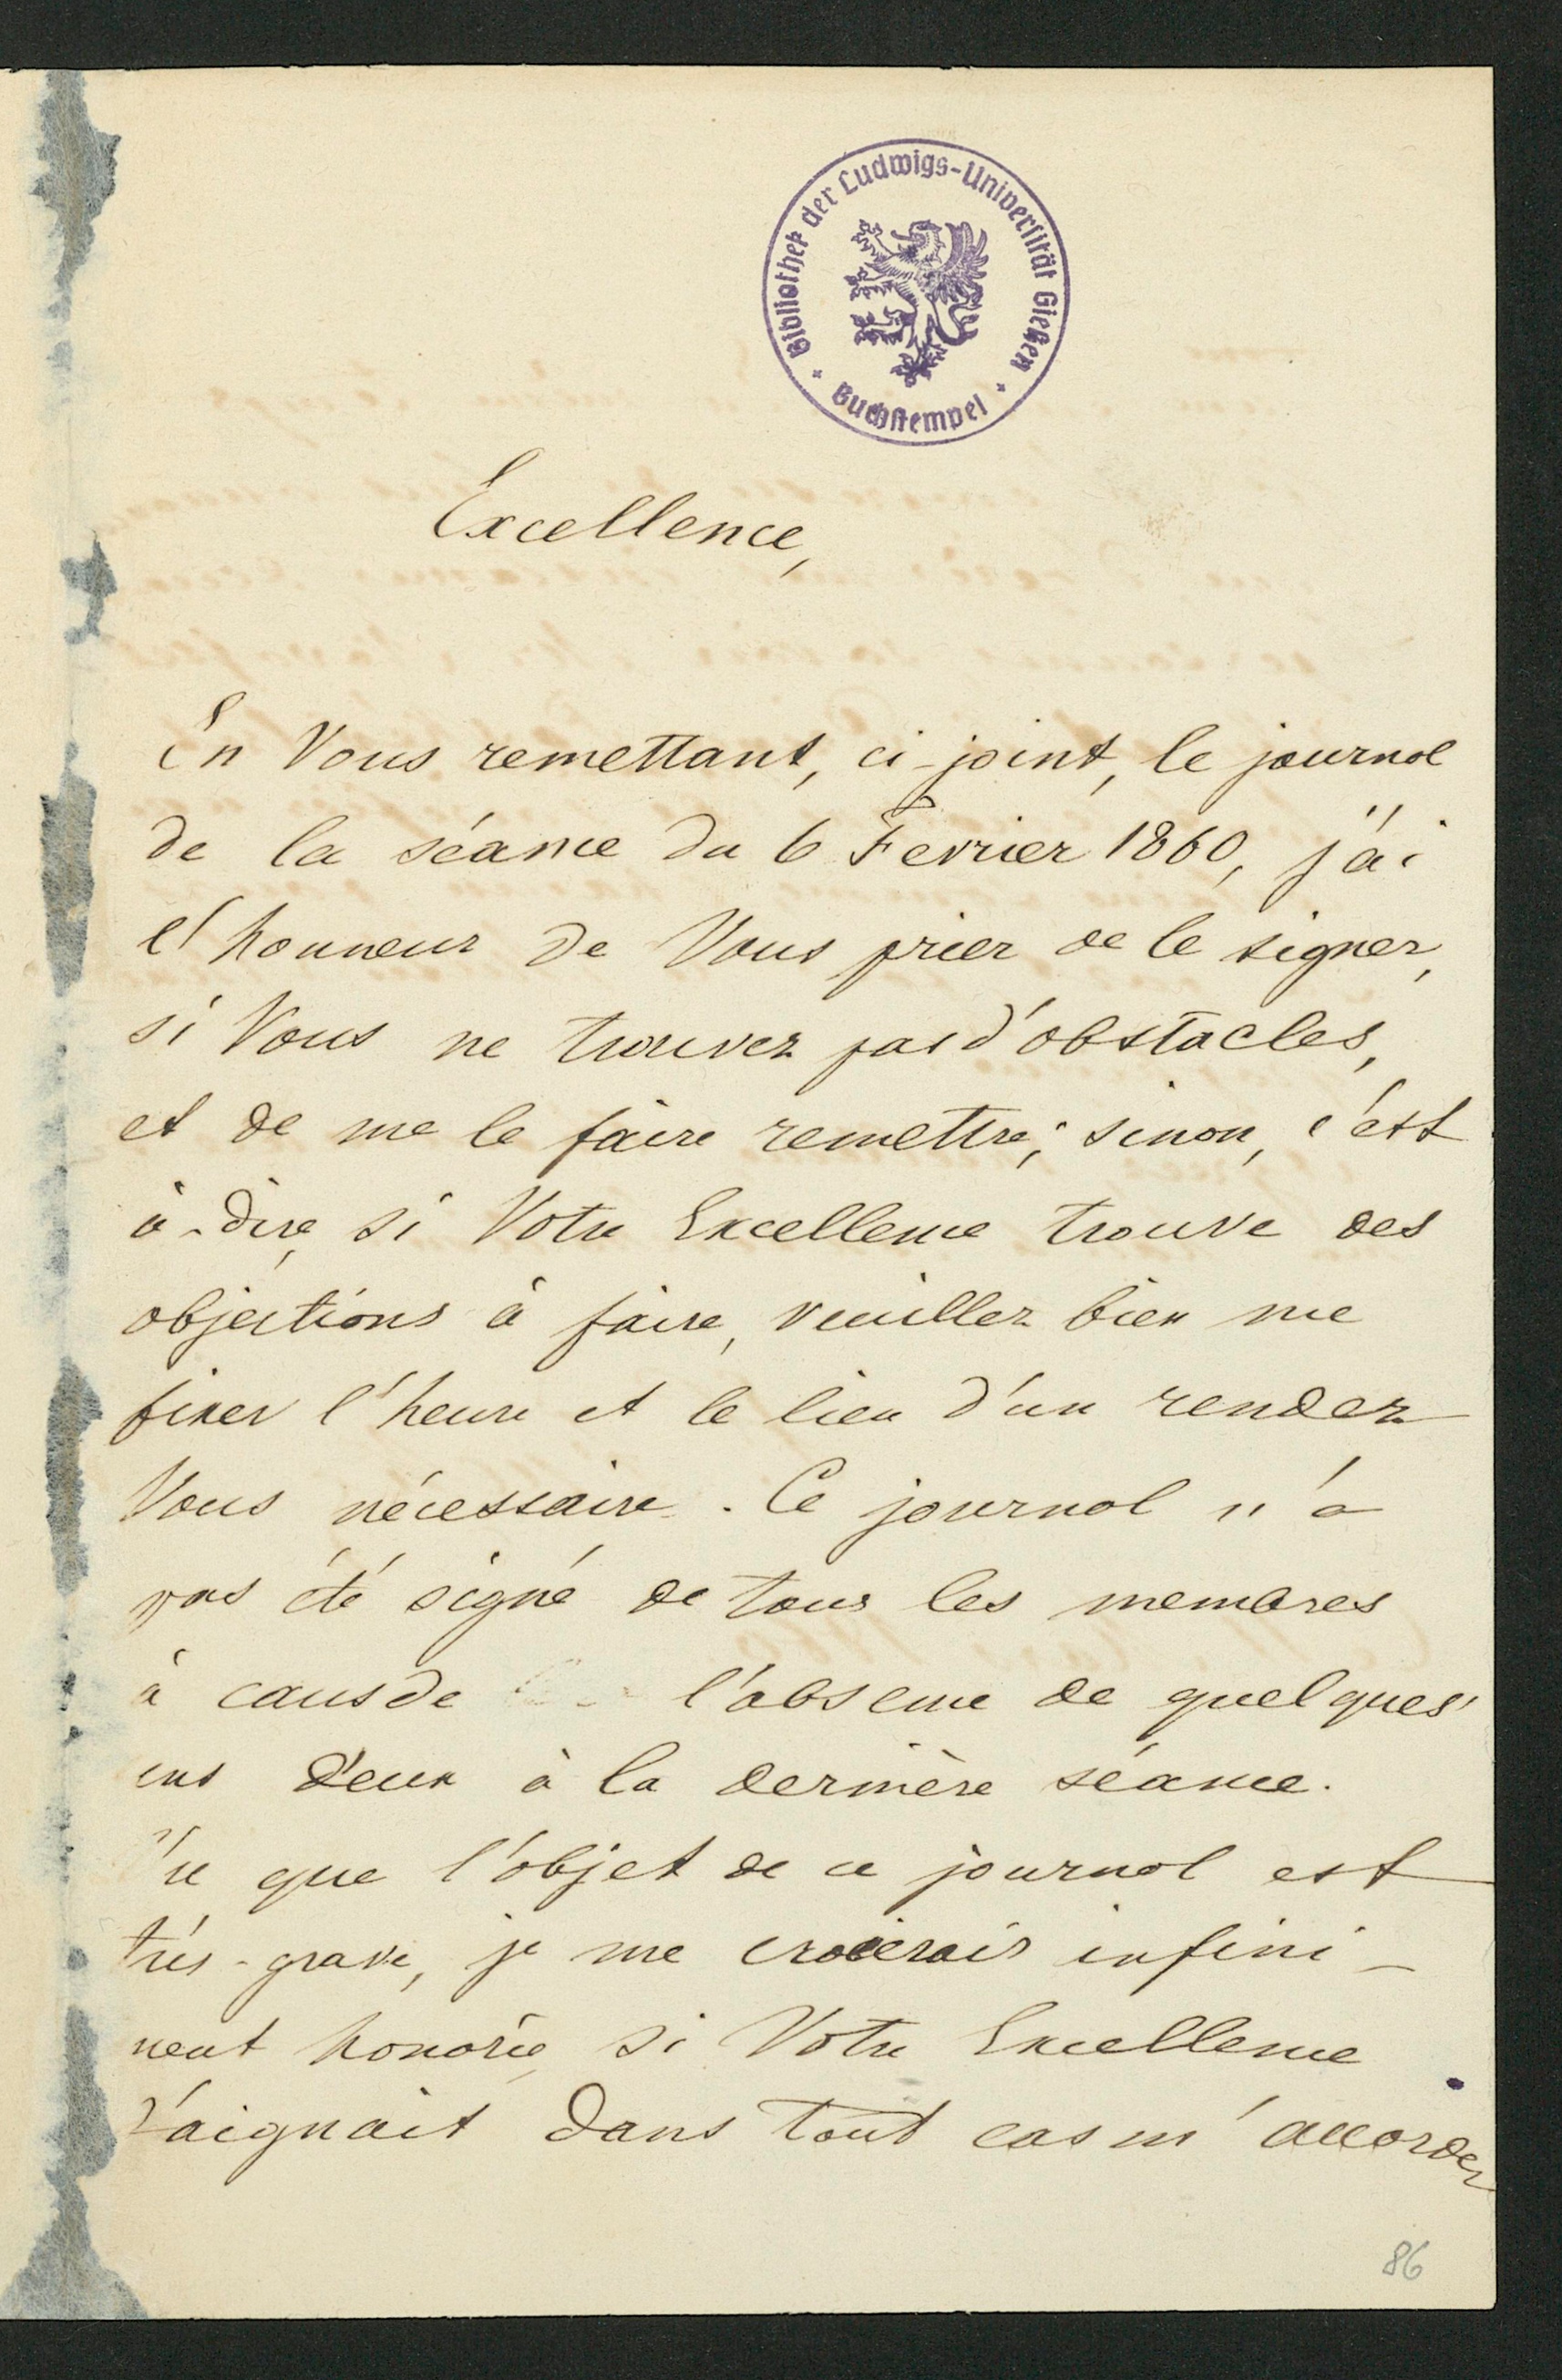 Bibliothek der Ludwigs-Universität Gießen
Buchstempel
Excellence,
En Vous remettant, ci-joint, le journal
de la séance du 6 Fevrier 1860, j'ai
l'honneur de Vous prier de le signer,
si Vous ne trouvez pas d'obstacles,
et de me le faire remettre; sinon, c'est
à-dire, si Votre Excellence trouve des
objections à faire, veuillez bien me
fixer l'heure et le lieu d'un rendez
Vous nécessaire. Ce journal n'a
pas été signé de tous les membres
à caus de l'absence de quelques'
uns d'eux à la dernière séance.
Vu que l'objet de ce journal est
très-grave, je me croierais infini-
ment honorée, si Votre Excellence
d'aignait dans tout cas m'accorder
86